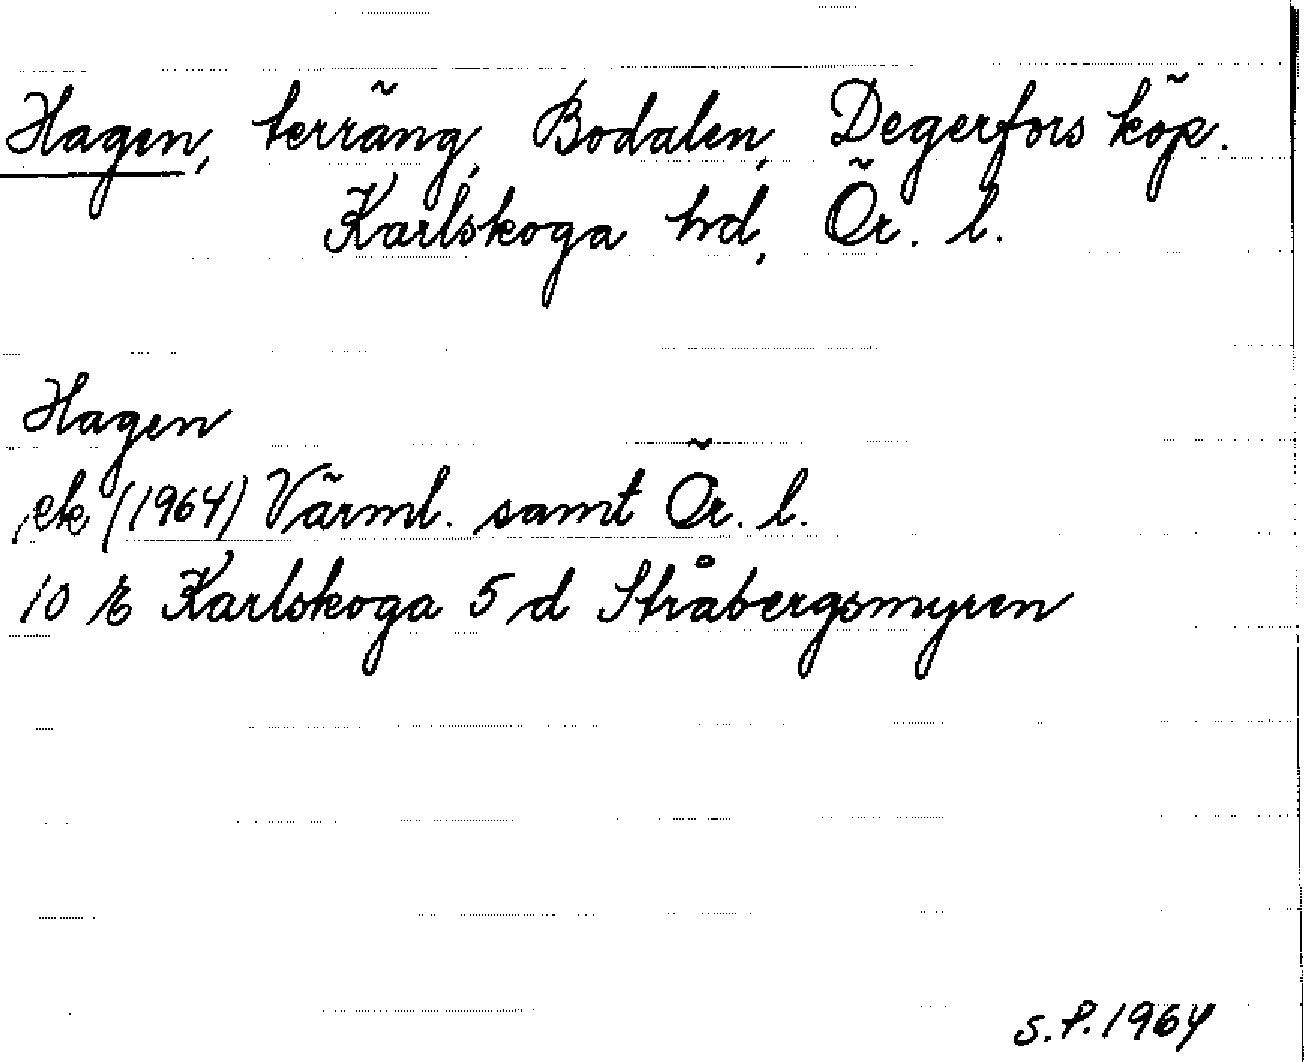 Hagen, terräng, Bodalen, Degerfors köp.
Karlskoga hd, Ör. l.
Hagen
ek (1964) Värml. samt Ör. l.
10 E Karlskoga 5 d Stråbergsmyren
S.P. 1964